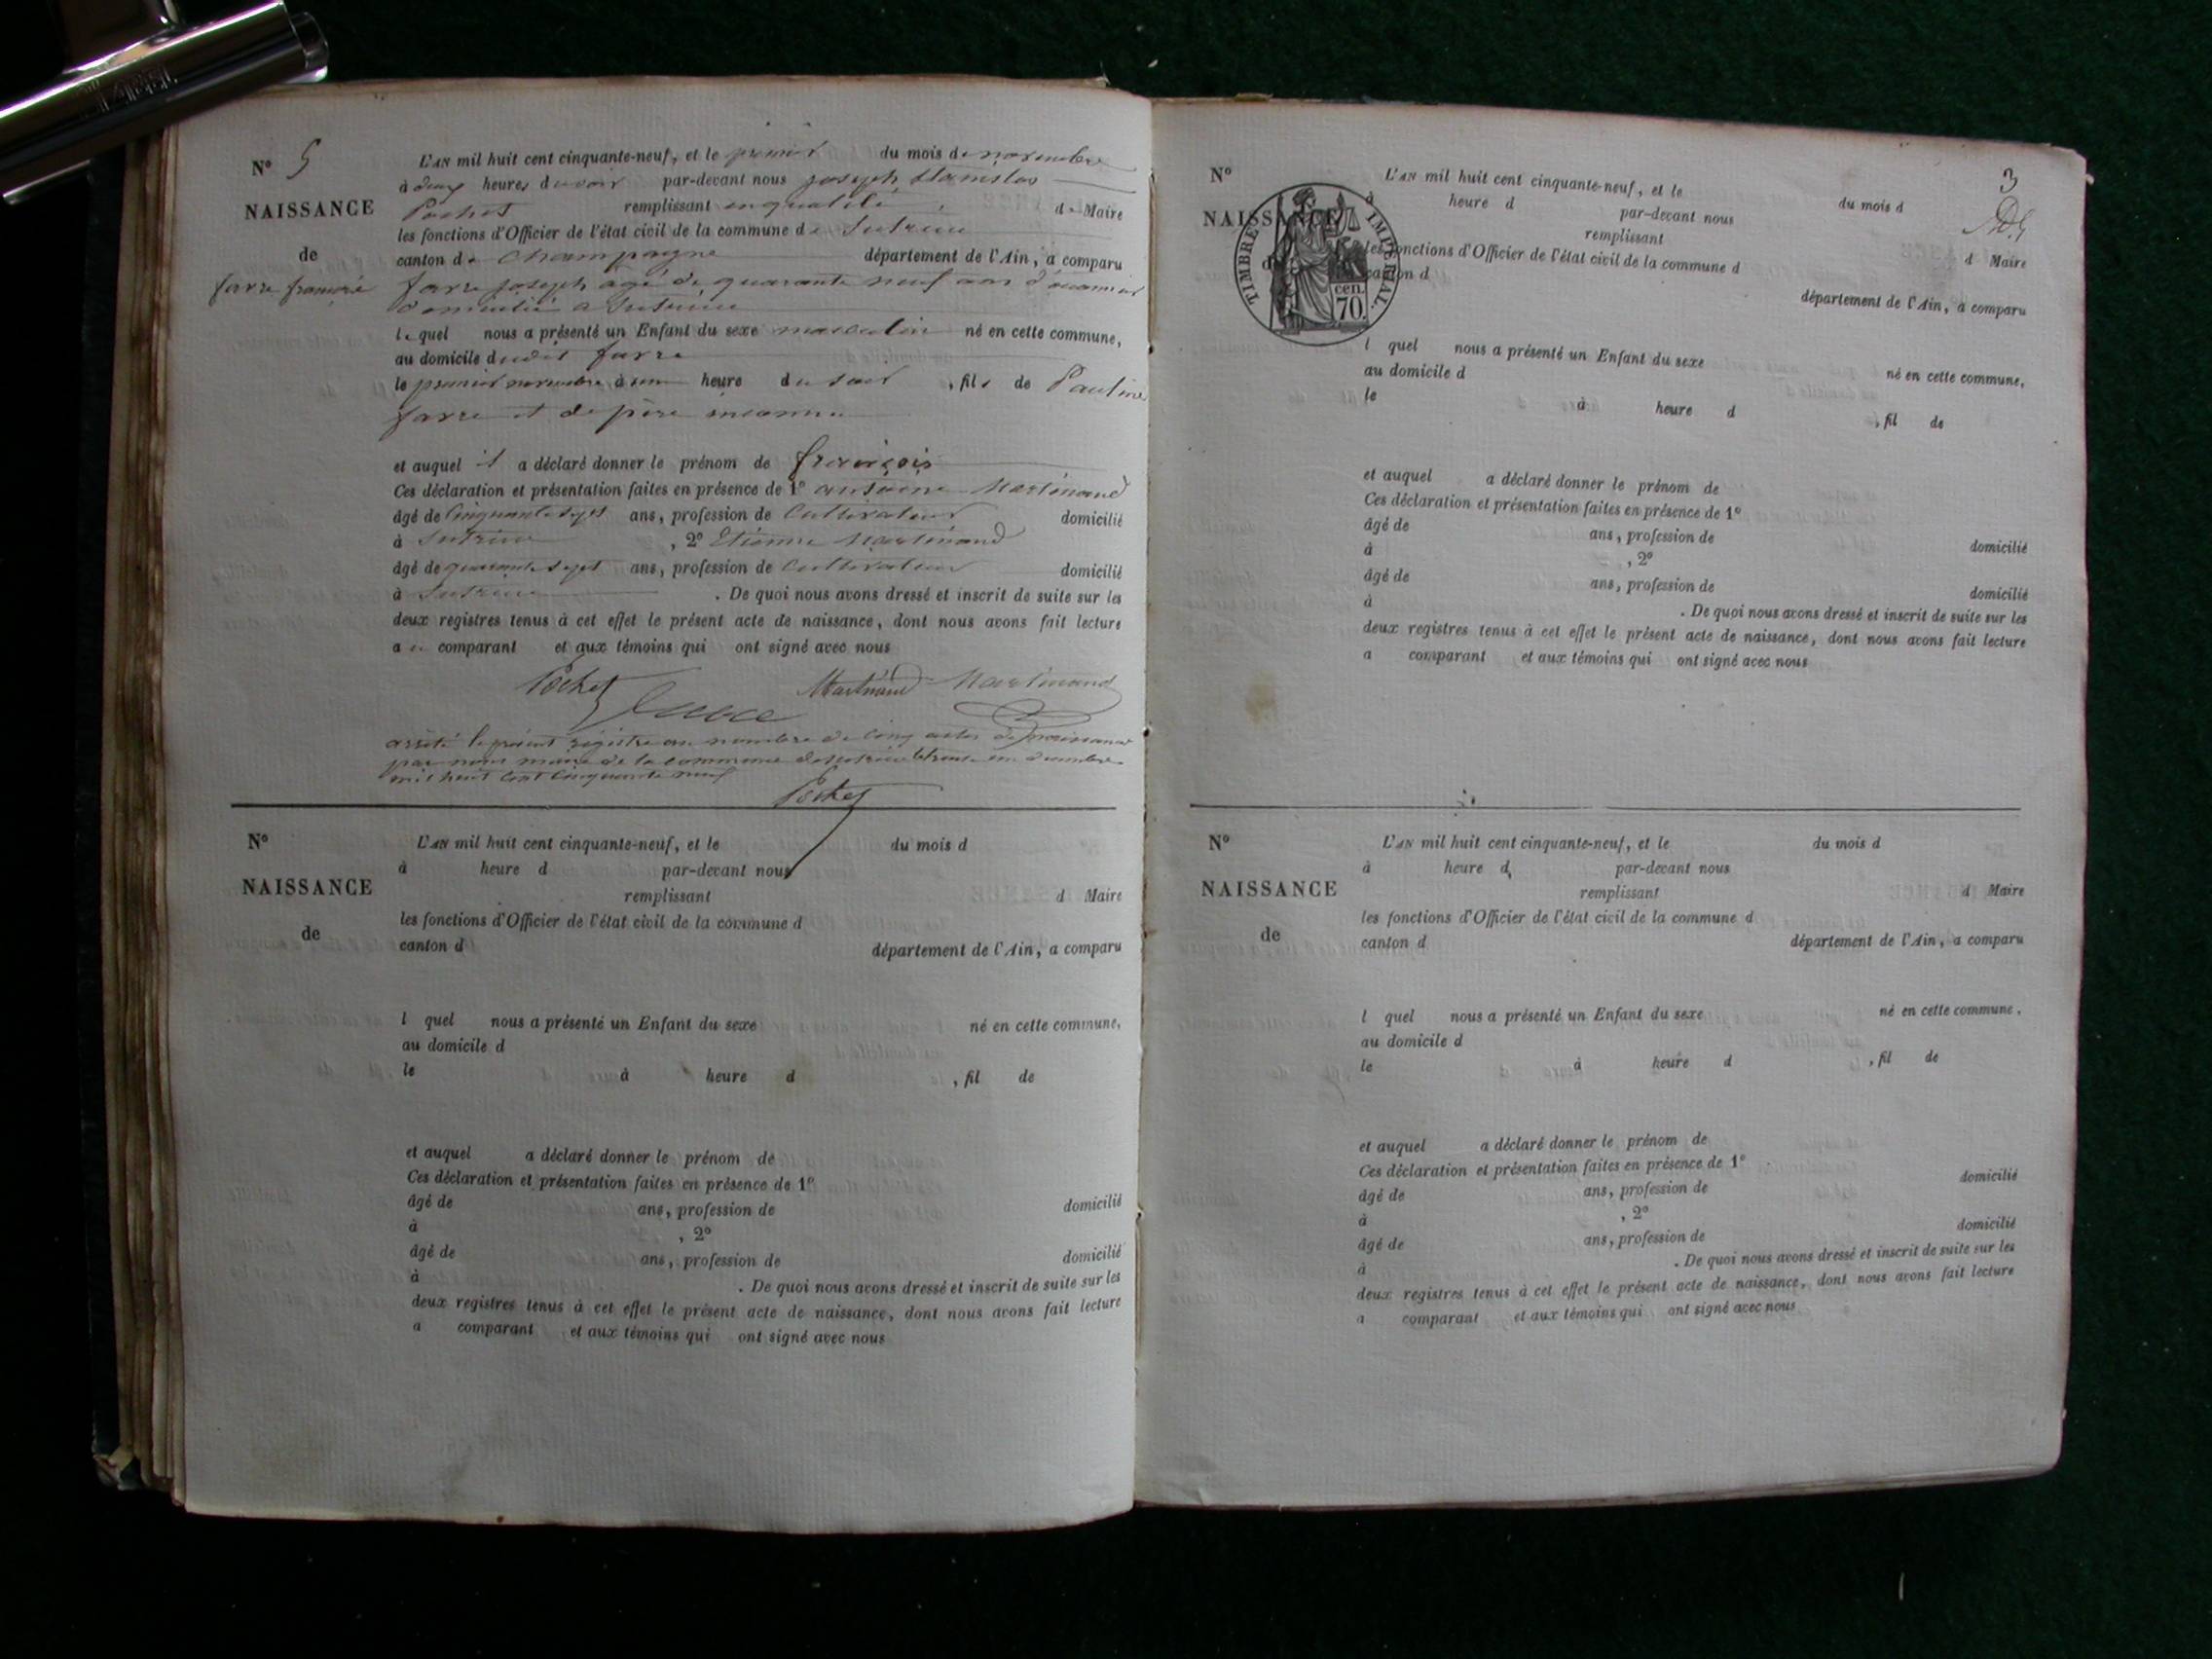 N° 5
NAISSANCE
de
farre françois
L'AN mil huit cent cinquante-neuf, et le premier du mois de novembre
à deux heures du soir par-devant nous joseph stanislas
Pochet remplissant en qualité de Maire
les fonctions d'Officier de l'état civil de la commune de Sutrieu
canton de Champagne département de l'Ain, a comparu
farre joseph âgé de quarante neuf ans
domicilié a Sutrieu
lequel nous a présenté un Enfant du sexe masculin né en cette commune,
au domicile dudit farre
le premier novembre à une heure du soir, fils de Pauline
farre et de père inconnu
et auquel il a déclaré donner le prénom de françois
Ces déclaration et présentation faites en présence de 1° antoine Martinand
âgé de Cinquante sept ans, profession de Cultivateur domicilié
à Sutrieu, 2° Etienne Martinand
âgé de quarante sept ans, profession de Cultivateur domicilié
à Sutrieu. De quoi nous avons dressé et inscrit de suite sur les
deux registres tenus à cet effet le présent acte de naissance, dont nous avons fait lecture
au comparant et aux témoins qui ont signé avec nous
Pochet Martinand Martinand
arrêté le présent registre au nombre de Cinq actes de naissance
par nous maire de la commune de Sutrieu le trente un décembre
mil huit cent Cinquante neuf
Pochet
N°
NAISSANCE
de
L'AN mil huit cent cinquante-neuf, et le du mois d
à heure d par-devant nous
remplissant d Maire
les fonctions d'Officier de l'état civil de la commune d
canton d département de l'Ain, a comparu
l quel nous a présenté un Enfant du sexe né en cette commune,
au domicile d
le à heure d , fil de
et auquel a déclaré donner le prénom de
Ces déclaration et présentation faites en présence de 1°
âgé de ans, profession de domicilié
à , 2°
âgé de ans, profession de domicilié
à . De quoi nous avons dressé et inscrit de suite sur les
deux registres tenus à cet effet le présent acte de naissance, dont nous avons fait lecture
a comparant et aux témoins qui ont signé avec nous
3
N°
NAISSANCE
de
TIMBRE IMPERIAL.
cen.
70.
L'AN mil huit cent cinquante-neuf, et le du mois d
à heure d par-devant nous
remplissant d Maire
les fonctions d'Officier de l'état civil de la commune d
canton d département de l'Ain, a comparu
l quel nous a présenté un Enfant du sexe né en cette commune,
au domicile d
le à heure d , fil de
et auquel a déclaré donner le prénom de
Ces déclaration et présentation faites en présence de 1°
âgé de ans, profession de domicilié
à , 2°
âgé de ans, profession de domicilié
à . De quoi nous avons dressé et inscrit de suite sur les
deux registres tenus à cet effet le présent acte de naissance, dont nous avons fait lecture
a comparant et aux témoins qui ont signé avec nous
N°
NAISSANCE
de
L'AN mil huit cent cinquante-neuf, et le du mois d
à heure d par-devant nous
remplissant d Maire
les fonctions d'Officier de l'état civil de la commune d
canton d département de l'Ain, a comparu
l quel nous a présenté un Enfant du sexe né en cette commune.
au domicile d
le à heure d , fil de
et auquel a déclaré donner le prénom de
Ces déclaration et présentation faites en présence de 1°
âgé de ans, profession de domicilié
à , 2°
âgé de ans, profession de domicilié
à . De quoi nous avons dressé et inscrit de suite sur les
deux registres tenus à cet effet le présent acte de naissance, dont nous avons fait lecture
a comparant et aux témoins qui ont signé avec nous